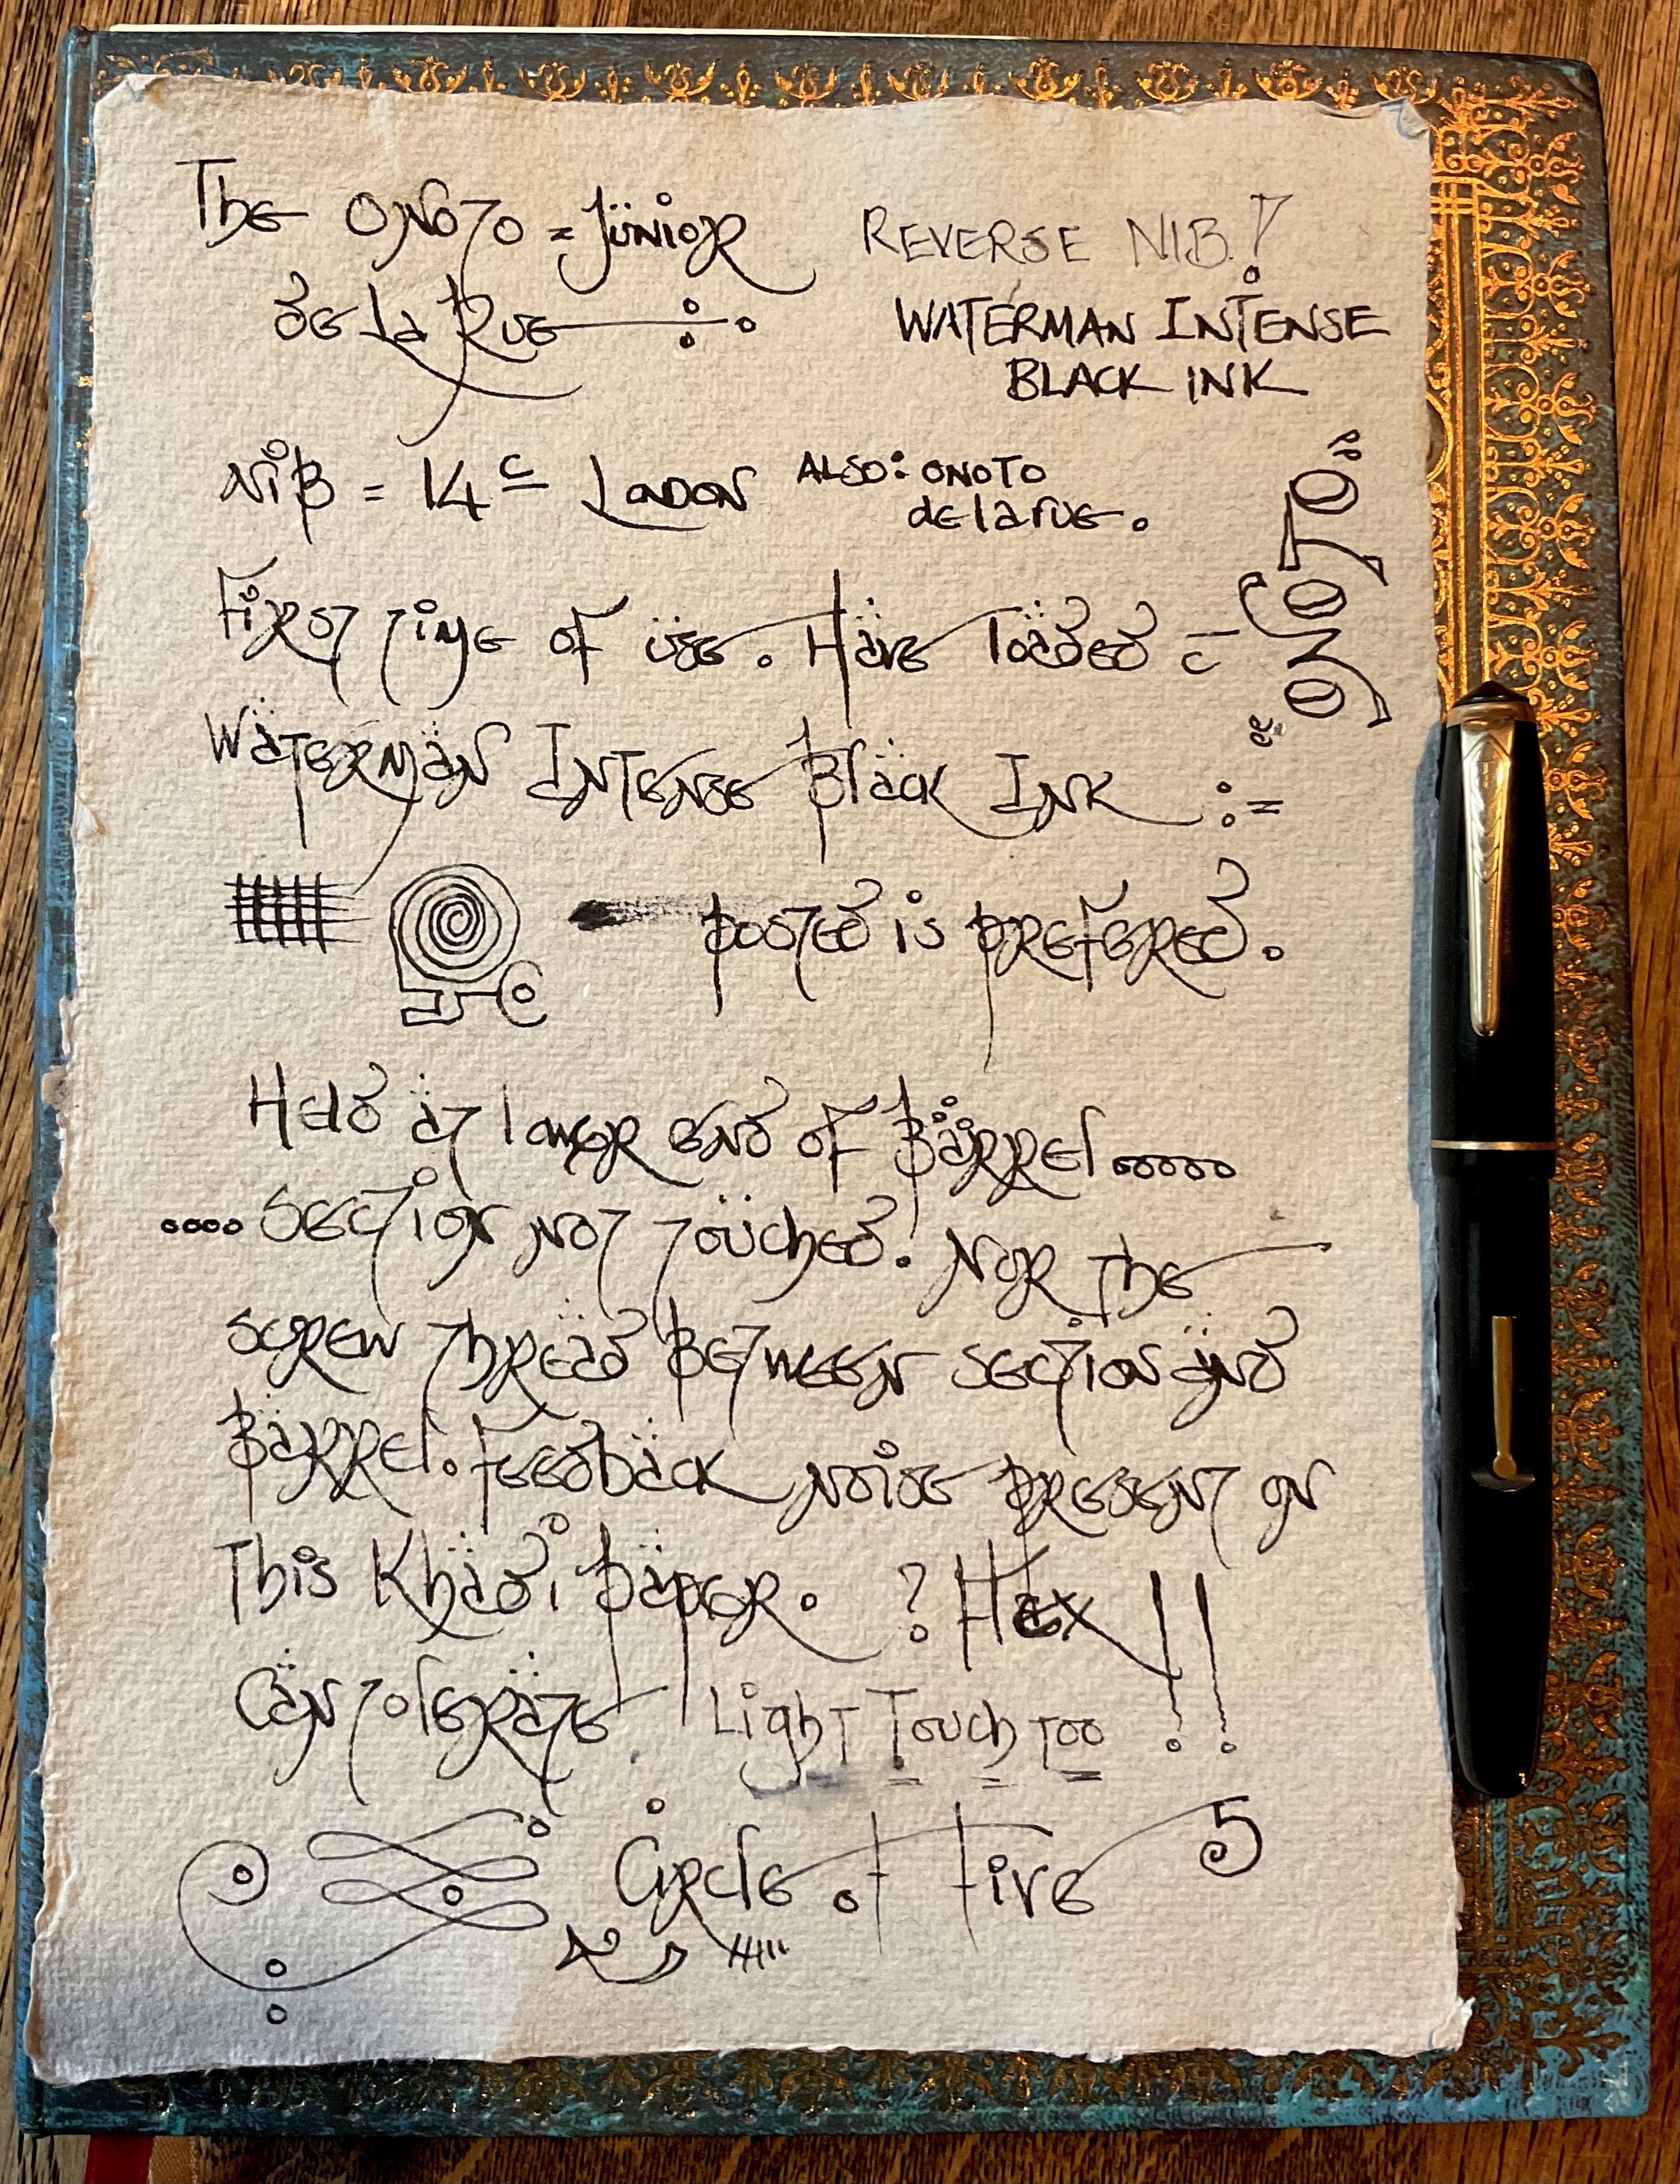 The Onoto = Junior
de La Rue
REVERSE NIB!
WATERMAN INTENSE
BLACK INK
NiB = 14c London
ALSO: ONOTO
de la rue.
ONOTO
First time of use. Have loaded c̄
Waterman Intense Black Ink
posted is prefered.
Held at lower end of Barrel
section not touched. Nor the
screw thread Between section and
Barrel. Feedback noise present on
This Khadi paper. ? Hex !!
Can tolerate Light Touch too
Circle of Five 5